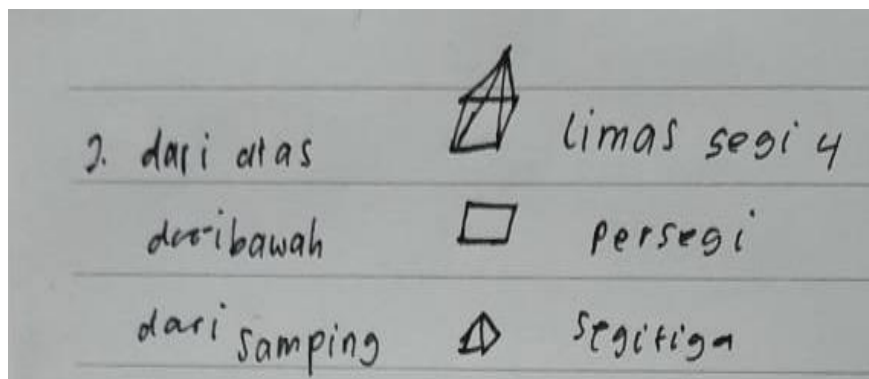 2. dari atas limas segi 4
dari bawah persegi
dari samping segitiga